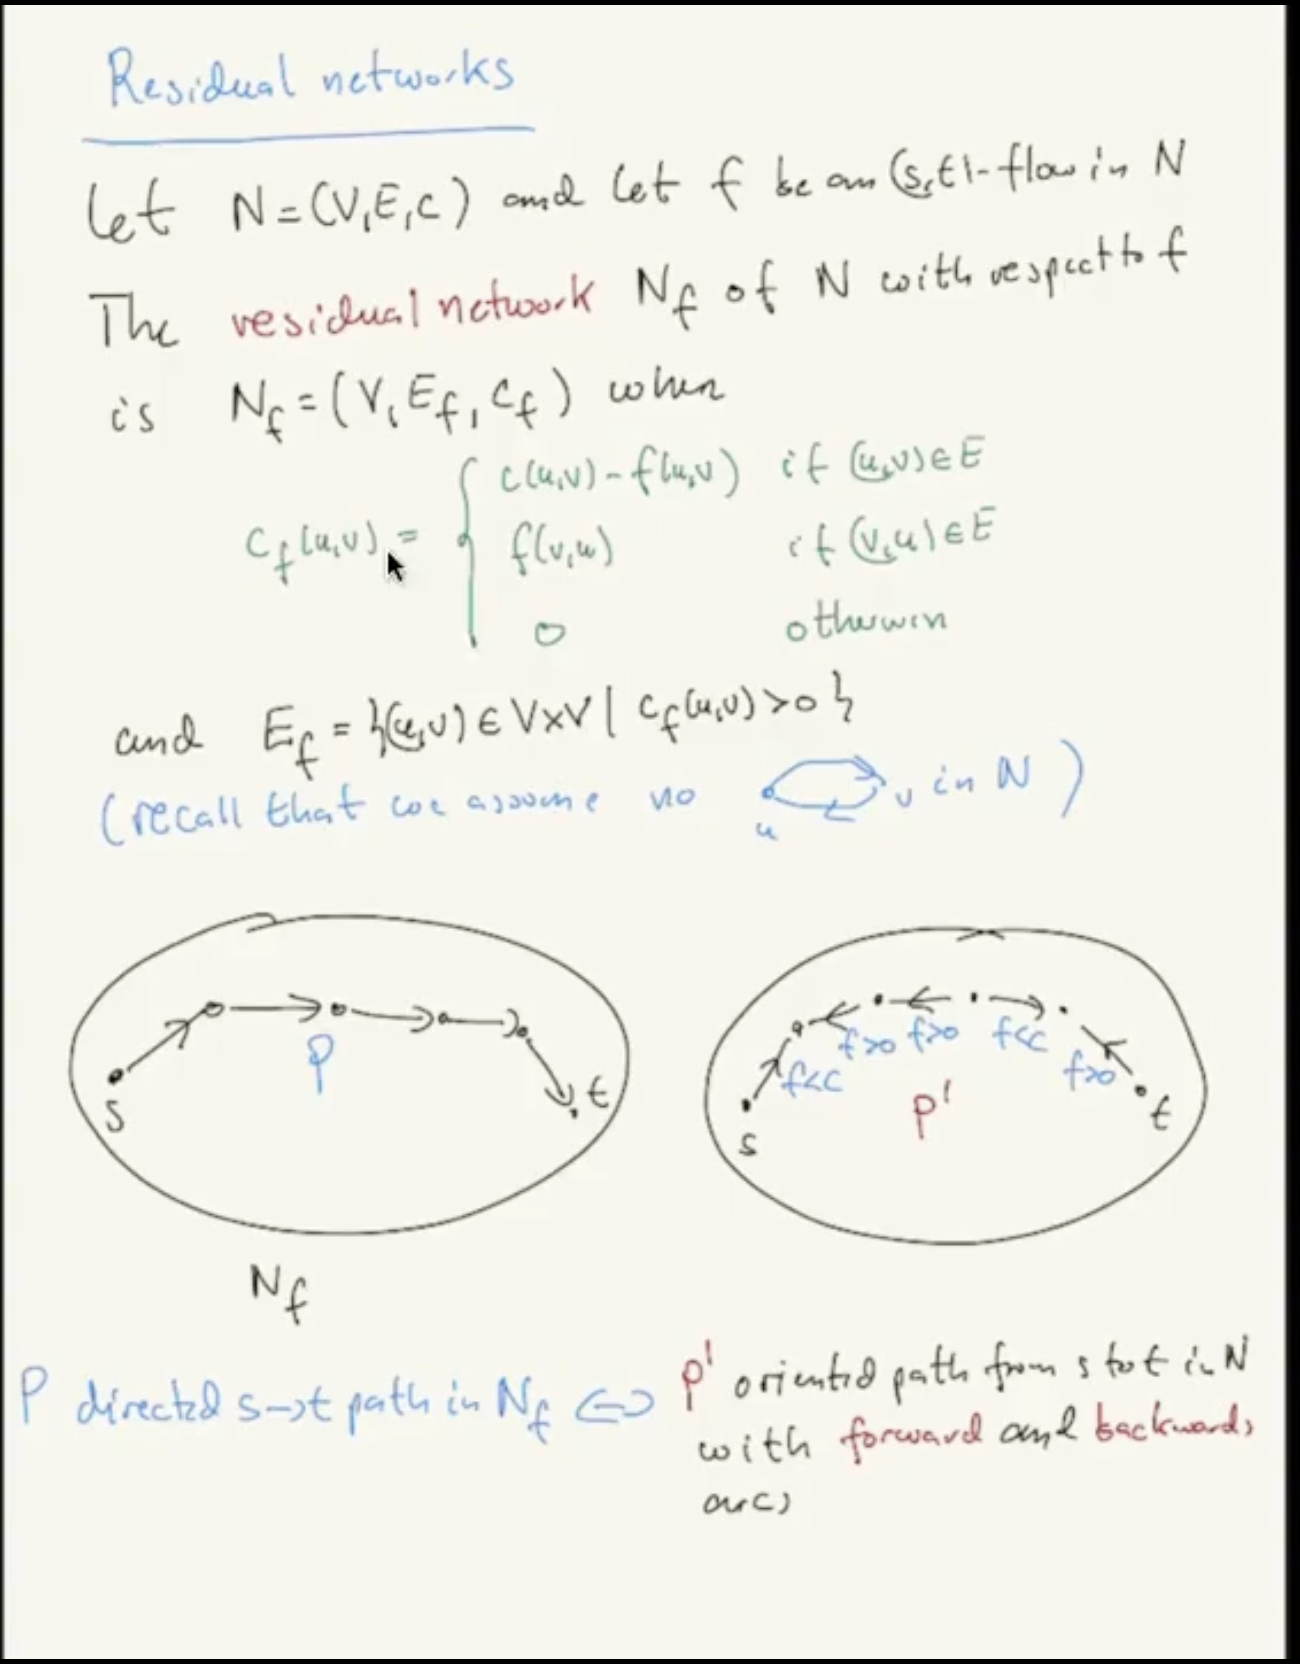 Residual networks
Let N=(V,E,c) and let f be an (s,t)-flow in N
The residual network N_f of N with respect to f
is N_f = (V, E_f, c_f) when
c(u,v) - f(u,v) if (u,v) ∈ E
c_f(u,v) = { f(v,u) if (v,u) ∈ E
0 otherwise
and E_f = {(u,v) ∈ V×V | c_f(u,v) > 0}
(recall that we assume no u v in N)
P
s
t
f<c f>0 f>0 f<c f>0
P'
s
t
N_f
P directed s→t path in N_f ⇔ P' oriented path from s to t in N
with forward and backwards
arcs